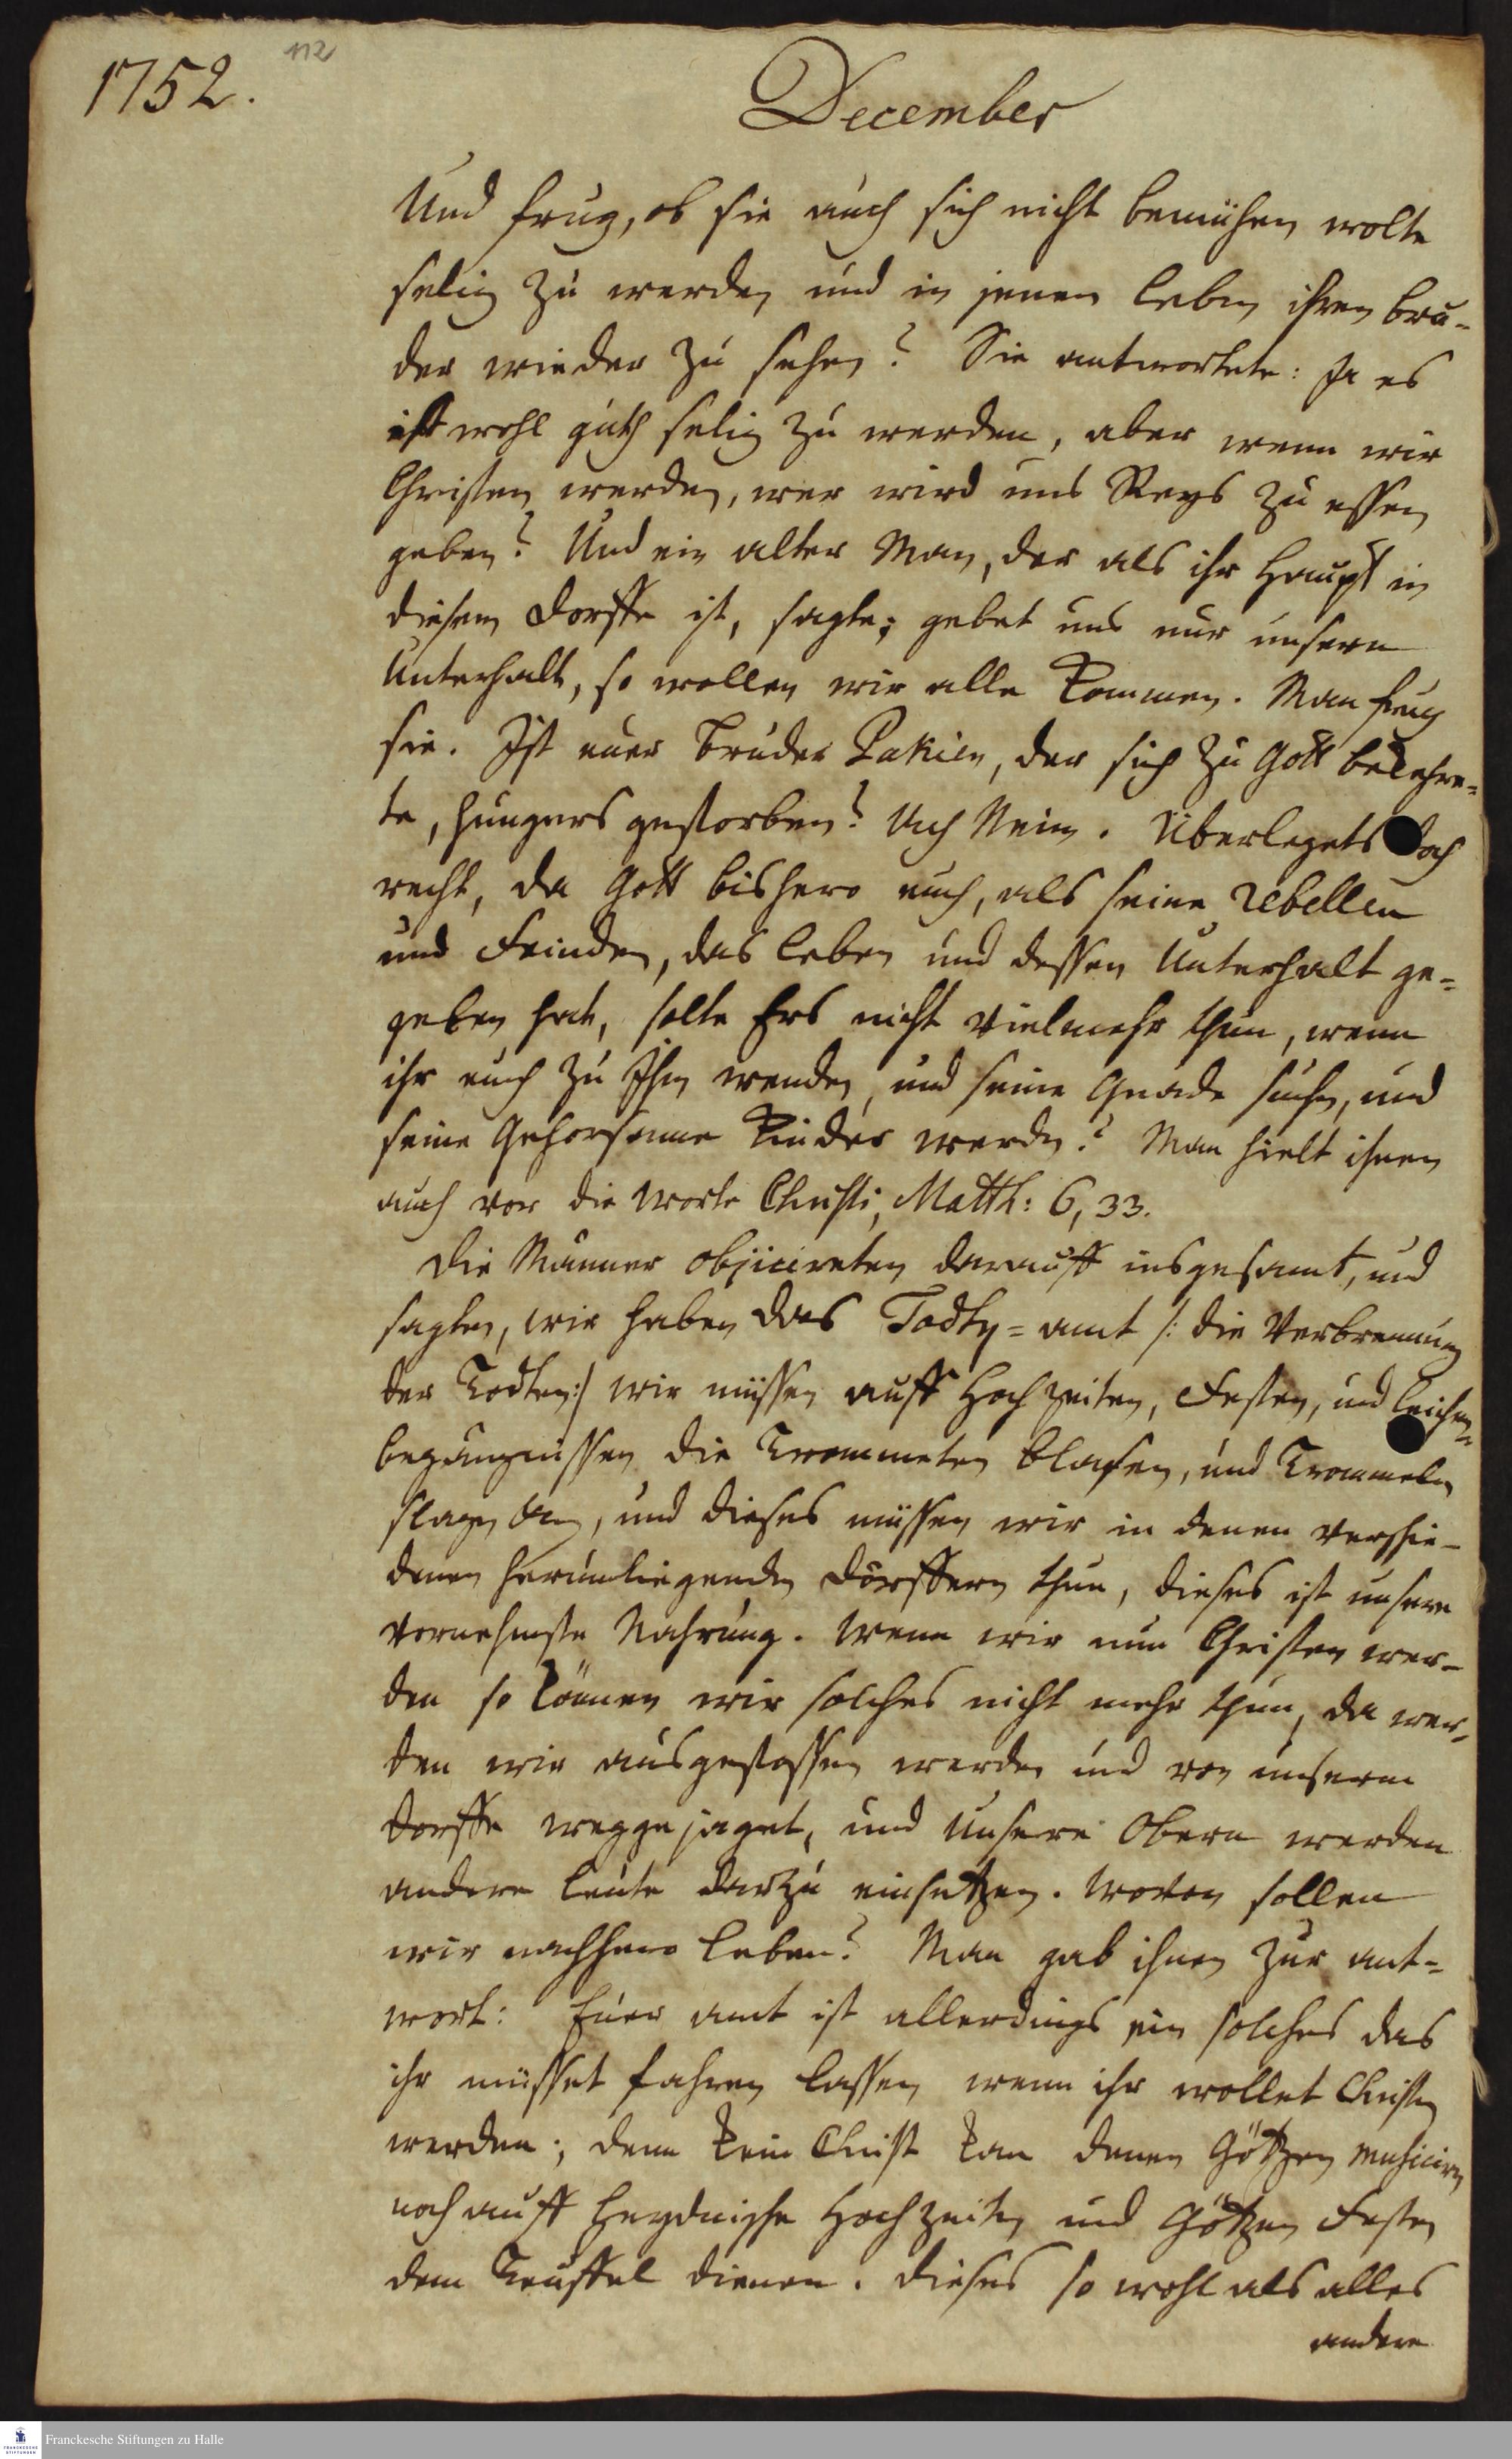 1752.
112
December
Und frug, ob sie auch sich nicht bemühen wolte
selig zu werden und in jenen leben ihren bru-
der wieder zu sehen? Sie antwortete: Ja es
ist wohl guth selig zu werden, aber wenn wir
Christen werden, wer wird uns Reys zu essen
geben? Und ein alter Man, der als ihr Haupt in
diesem Dorffe ist, sagte; gebet uns nur unsern
Unterhalt, so wollen wir alle kommen. Man frug
sie. Ist euer bruder Pakien, der sich zu Gott bekehre-
te, hungers gestorben? Ach Nein. Überlegets doch
recht, da Gott bishero euch, als seine rebellen
und Feinden, das leben und dessen Unterhalt ge-
geben hat, solte Ers nicht vielmehr thun, wenn
ihr euch zu Ihm wenden, und seine Gnade suchen, und
seine Gehorsame kinder werden? Man hielt ihnen
auch vor die Worte Christi, Matth: 6, 33.
Die Männer objicireten darauff insgesamt, und
sagten, wir haben das Todten-amt /: die Verbrennung
der Todten :/ wir müssen auff Hochzeiten, Festen, und leichen-
begängnissen die Trommeten blasen, und Trommeln
slagen, und dieses müssen wir in denen verschie-
denen herumliegenden Dörffern thun, dieses ist unsere
vornehmste Nahrung. Wenn wir nun Christen wer-
den so können wir solches nicht mehr thun, da wer-
den wir ausgestossen werden und von unserm
Dorffe weggejaget, und unsere Obern werden
andere leute darzu einsetzen. Wovon sollen
wir nachhero leben? Man gab ihnen zur ant-
wort: Euer amt ist allerdings ein solches das
ihr müsset fahren lassen wenn ihr wollet Christen
werden; denn kein Christ kan denen Götzen musiciren
noch auff heydnische Hochzeiten und Götzen Festen
dem Teuffel dienen. Dieses so wohl als alles
andere
Franckesche Stiftungen zu Halle